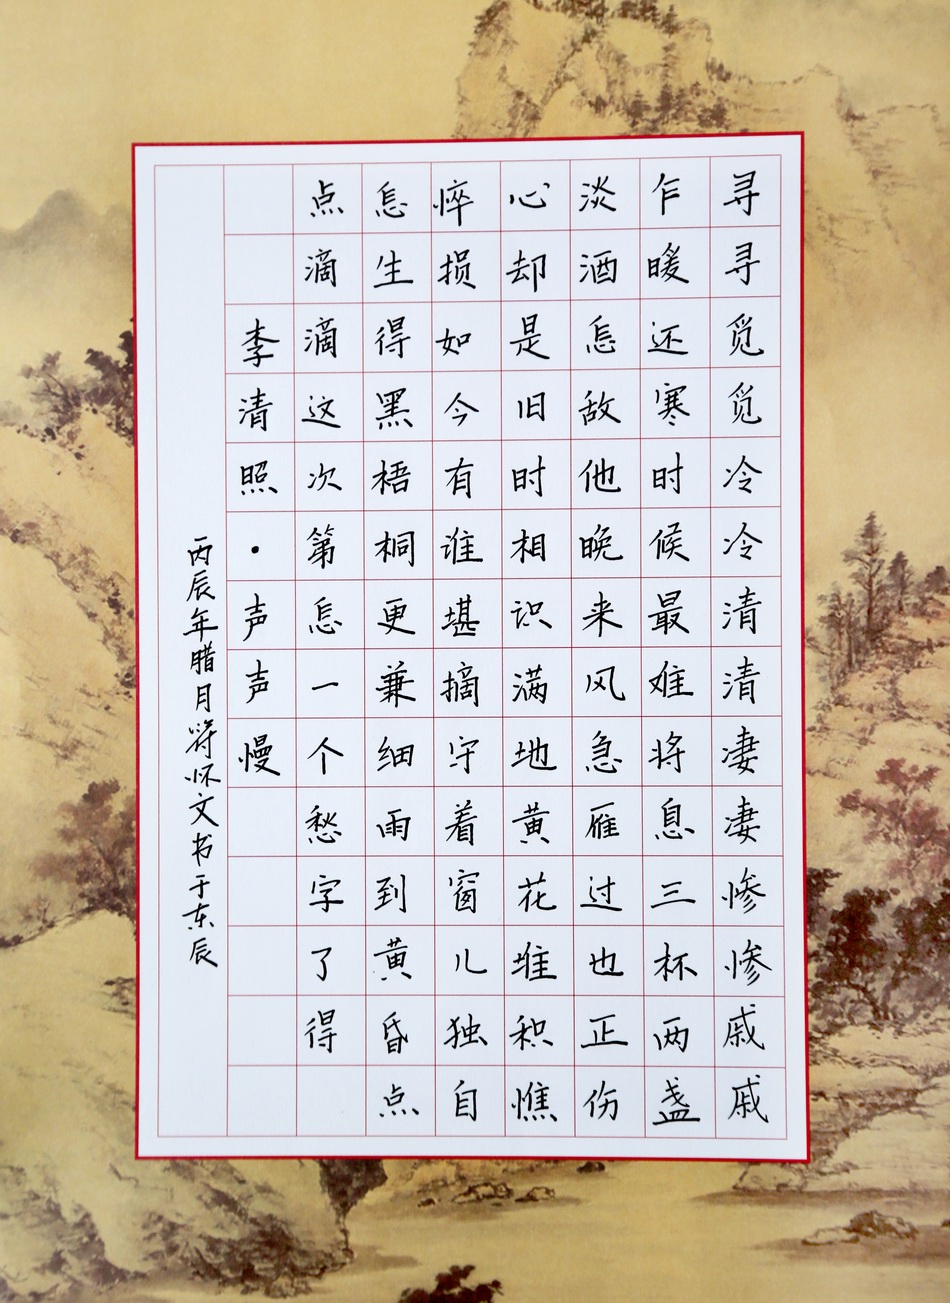 寻寻觅觅冷冷清清凄凄惨惨戚戚
乍暖还寒时候最难将息三杯两盏
淡酒怎敌他晚来风急雁过也正伤
心却是旧时相识满地黄花堆积憔
悴损如今有谁堪摘守着窗儿独自
怎生得黑梧桐更兼细雨到黄昏点
点滴滴这次第怎一个愁字了得
李清照·声声慢
丙辰年腊月符怀文书于东辰